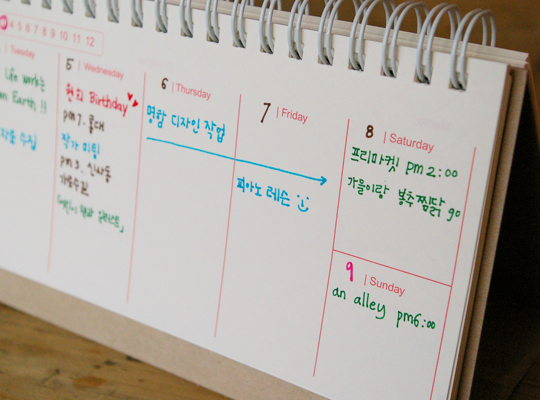 4 5 6 7 8 9 10 11 12
Tuesday
Life works
on Earth !!
수집
5 | Wednesday
Birthday
pm 7. 홍대
작가 미팅
pm 3. 신사동
가로수길
6 | Thursday
명함 디자인 작업
7 | Friday
피아노 레슨
8 | Saturday
프리마켓 pm 2:00
가을이랑 봉추찜닭 go
9 | Sunday
an alley pm6:00